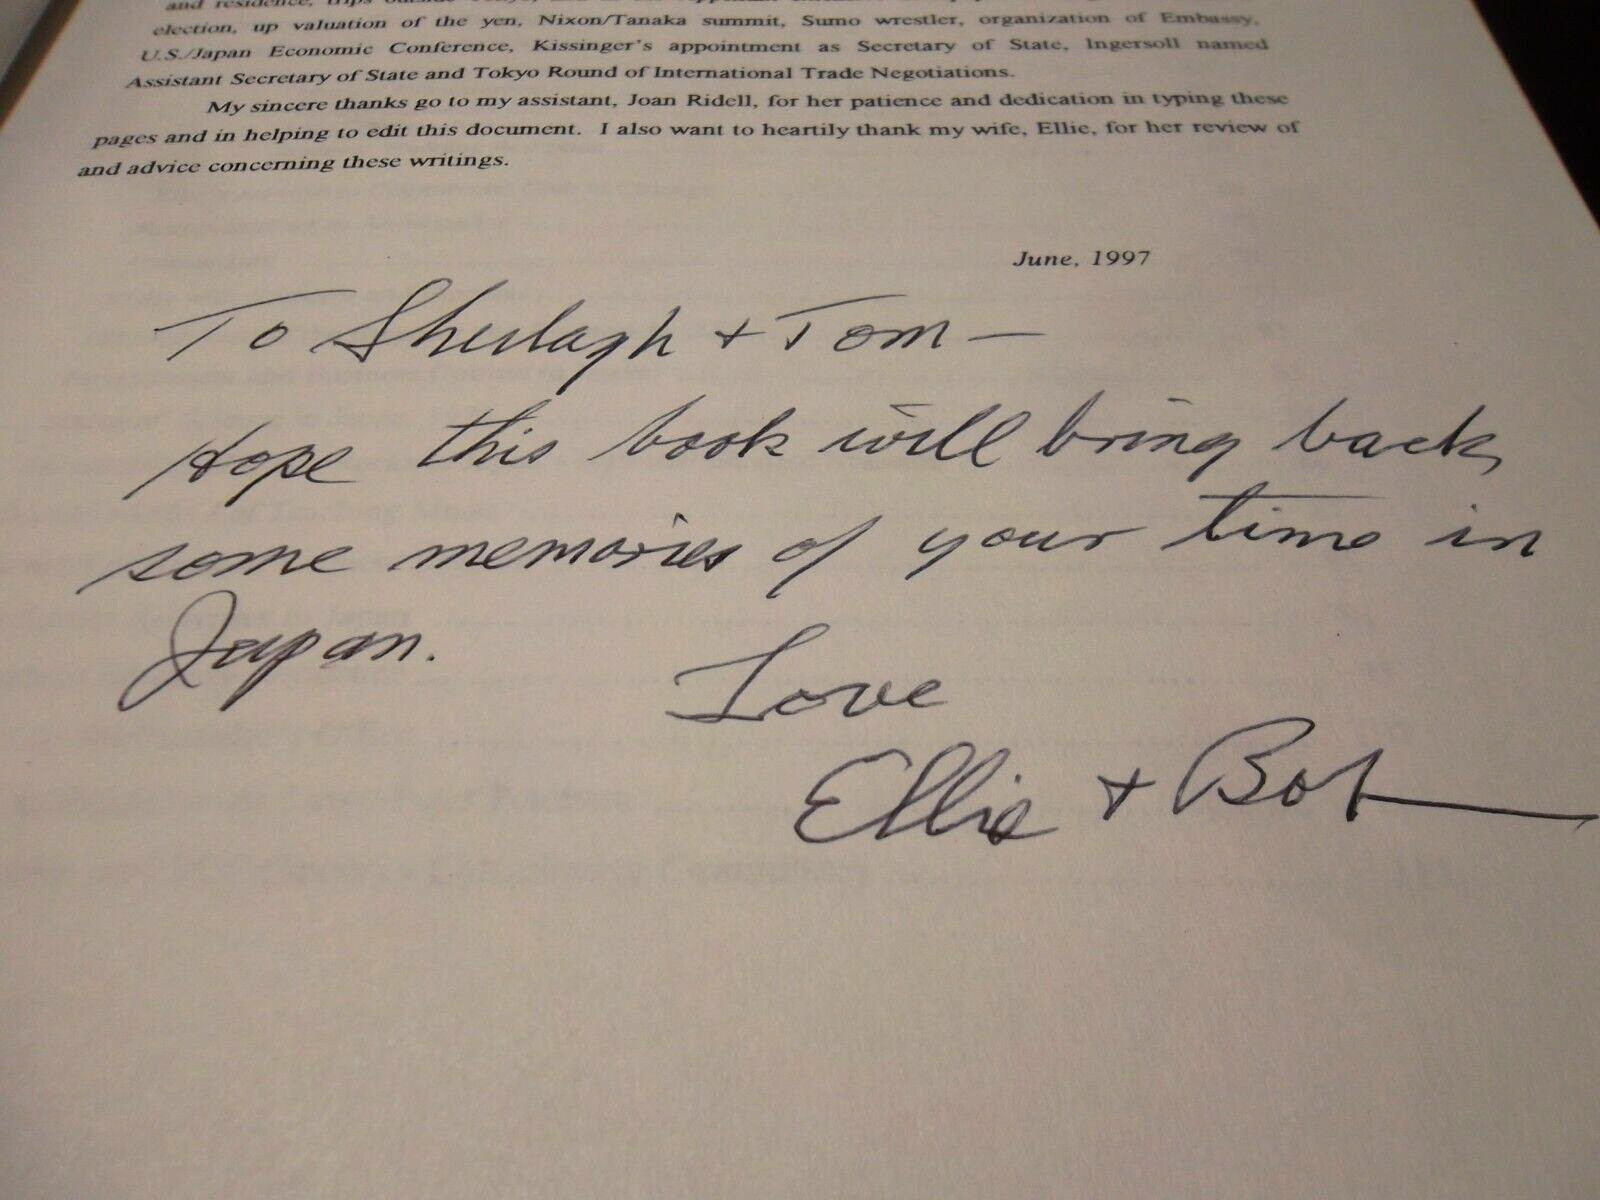 and residence, trips outside
election, up valuation of the yen, Nixon/Tanaka summit, Sumo wrestler, organization of Embassy,
U.S./Japan Economic Conference, Kissinger's appointment as Secretary of State, Ingersoll named
Assistant Secretary of State and Tokyo Round of International Trade Negotiations.
My sincere thanks go to my assistant, Joan Ridell, for her patience and dedication in typing these
pages and in helping to edit this document. I also want to heartily thank my wife, Ellie, for her review of
and advice concerning these writings.
June, 1997
To Sheilagh + Tom —
Hope this book will bring back
some memories of your time in
Japan.
Love
Ellie + Bob